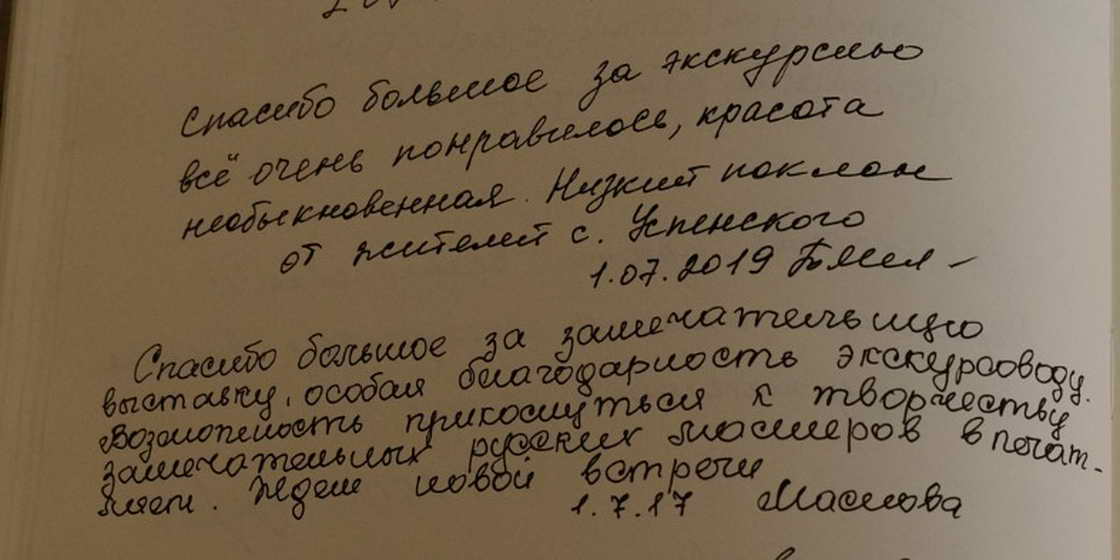 Спасибо большое за экскурсию
всё очень понравилось, красота
необыкновенная. Низкий поклон
от жителей с. Успенского
1.07.2019
Спасибо большое за замечательную
выставку, особая благодарность экскурсоводу.
Возможность прикоснуться к творчеству
замечательных русских мастеров впечат-
ляет. Ждем новой встречи
1.7.17 Маслова